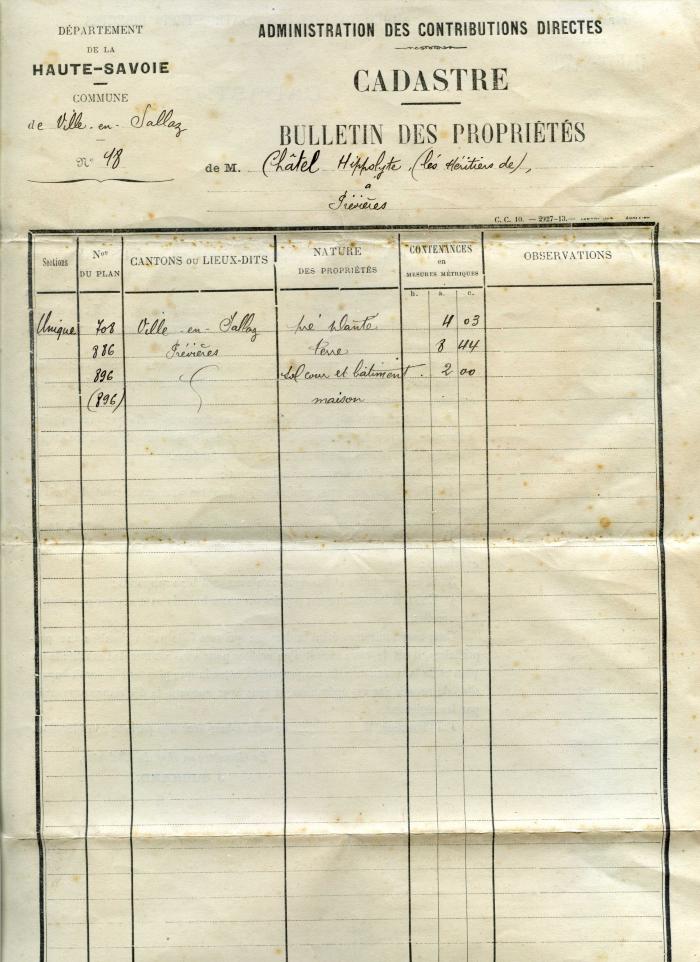 DÉPARTEMENT
DE LA
HAUTE-SAVOIE
COMMUNE
de Ville-en-Sallaz
N° 48
ADMINISTRATION DES CONTRIBUTIONS DIRECTES
CADASTRE
BULLETIN DES PROPRIÉTÉS
de M. Châtel Hippolyte, (les Héritiers de),
à
Prévières
C. C. 10. — 2927-13.—
Sections Nos DU PLAN CANTONS OU LIEUX-DITS NATURE DES PROPRIÉTÉS CONTENANCES en MESURES MÉTRIQUES OBSERVATIONS
h. a. c.
Unique 708 Ville-en-Sallaz pré planté 4 03
886 Prévières terre 8 44
896 sol cour et bâtiment. 2 00
(896) maison